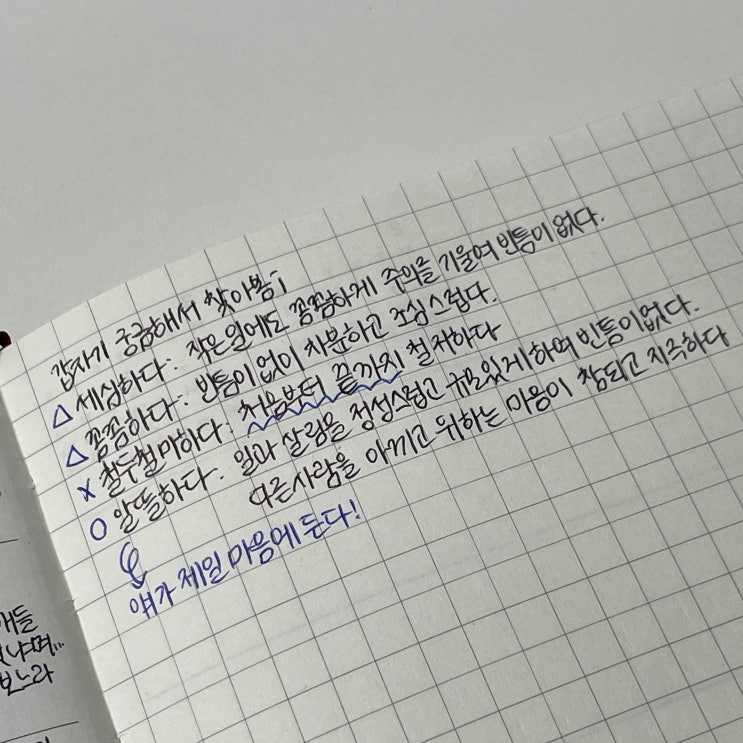 갑자기 궁금해서 찾아봄;
△ 세심하다: 작은 일에도 꼼꼼하게 주의를 기울여 빈틈이 없다.
△ 꼼꼼하다: 빈틈이 없이 차분하고 조심스럽다.
X 철두철미하다: 처음부터 끝까지 철저하다
O 알뜰하다: 일과 살림을 정성스럽고 규모있게 하여 빈틈이 없다.
다른 사람을 아끼고 위하는 마음이 참되고 지극하다
얘가 제일 마음에 든다!
애들
보느라